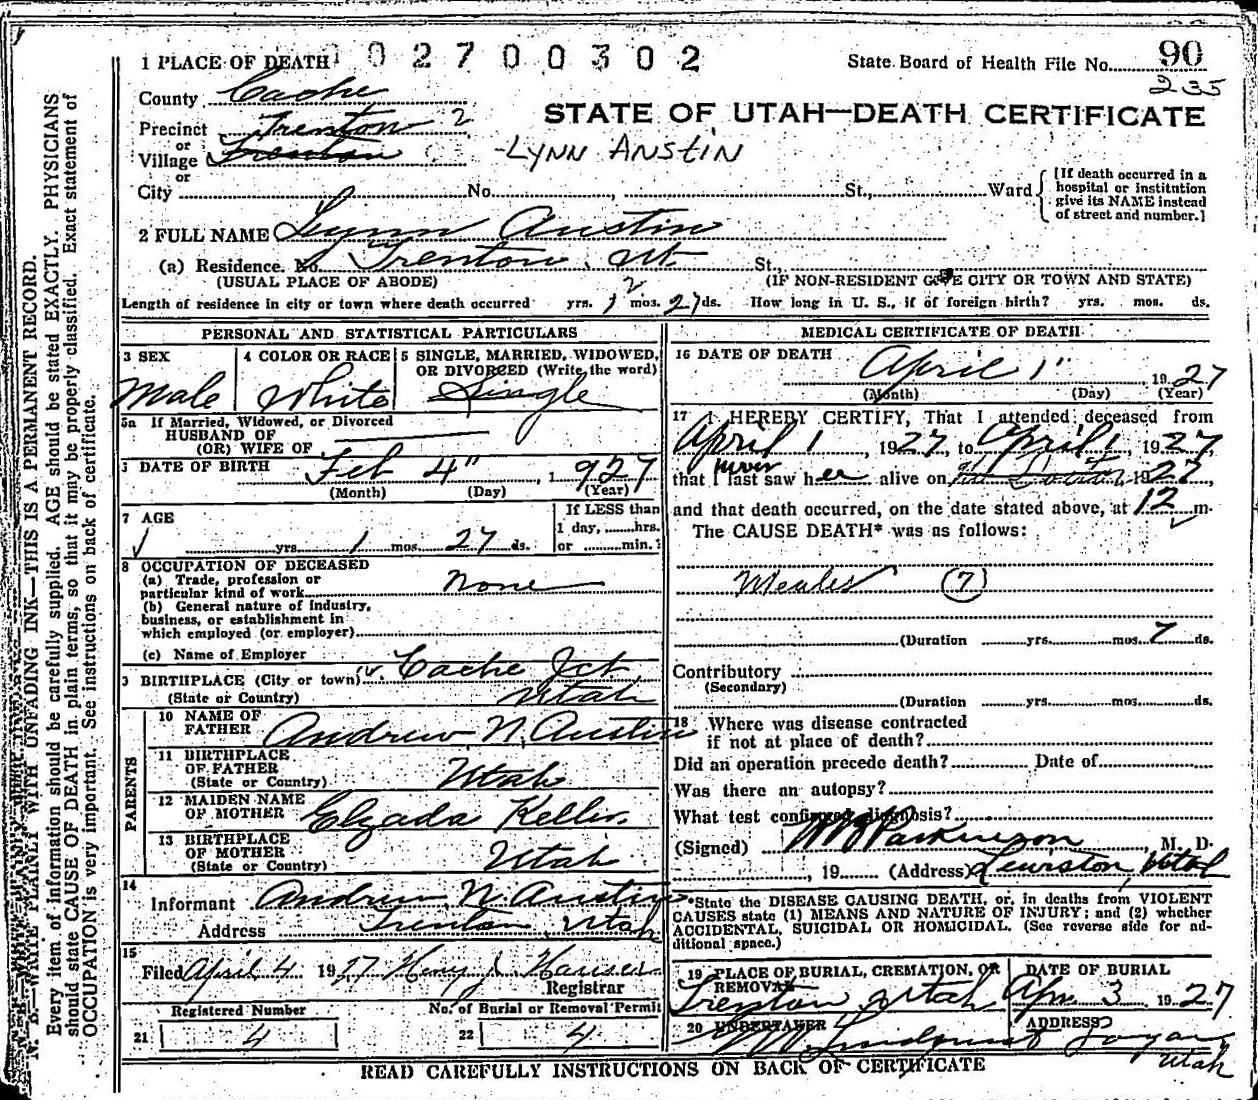 1 PLACE OF DEATH 0 0 2 7 0 0 3 0 2
State Board of Health File No. 90
235
County Cache
STATE OF UTAH—DEATH CERTIFICATE
Precinct Trenton 2
or
Village Trenton
LYNN AUSTIN
or
City No. St., Ward
[If death occurred in a
hospital or institution
give its NAME instead
of street and number.]
2 FULL NAME Lynn Austin
(a) Residence. No. Trenton, Ut. St.,
(USUAL PLACE OF ABODE) (IF NON-RESIDENT GIVE CITY OR TOWN AND STATE)
Length of residence in city or town where death occurred yrs. 1 mos. 27 ds. How long in U. S., if of foreign birth? yrs. mos. ds.
PERSONAL AND STATISTICAL PARTICULARS
3 SEX 4 COLOR OR RACE 5 SINGLE, MARRIED, WIDOWED,
OR DIVORCED (Write the word)
Male White Single
5a If Married, Widowed, or Divorced
HUSBAND OF
(OR) WIFE OF
DATE OF BIRTH Feb 4" , 1927
(Month) (Day) (Year)
7 AGE
yrs. 1 mos. 27 ds.
If LESS than
1 day, hrs.
or min.?
8 OCCUPATION OF DECEASED
(a) Trade, profession or
particular kind of work None
(b) General nature of industry,
business, or establishment in
which employed (or employer)
(c) Name of Employer
BIRTHPLACE (City or town) Cache Jct
(State or Country) Utah
PARENTS
10 NAME OF
FATHER Andrew N. Austin
11 BIRTHPLACE
OF FATHER
(State or Country) Utah
12 MAIDEN NAME
OF MOTHER Elzada Keller
13 BIRTHPLACE
OF MOTHER
(State or Country) Utah
14
Informant Andrew N. Austin
Address Trenton, Utah
15
Filed April 4 1927 Henry J. Hauser
Registrar
Registered Number No. of Burial or Removal Permit
21 4 22 4
MEDICAL CERTIFICATE OF DEATH
16 DATE OF DEATH
April 1" , 1927
(Month) (Day) (Year)
17 I HEREBY CERTIFY, That I attended deceased from
April 1 , 1927, to April 1, 1927,
never
that I last saw her alive on 1927,
and that death occurred, on the date stated above, at 12 m.
The CAUSE DEATH* was as follows:
Measles (7)
(Duration yrs. mos. 7 ds.
Contributory
(Secondary)
(Duration yrs. mos. ds.
18 Where was disease contracted
if not at place of death?
Did an operation precede death? Date of
Was there an autopsy?
What test confirmed diagnosis?
(Signed) Parkinson, M. D.
, 19 (Address) Lewiston, Utah
*State the DISEASE CAUSING DEATH, or, in deaths from VIOLENT
CAUSES state (1) MEANS AND NATURE OF INJURY; and (2) whether
ACCIDENTAL, SUICIDAL OR HOMICIDAL. (See reverse side for ad-
ditional space.)
19 PLACE OF BURIAL, CREMATION, OR
REMOVAL
Trenton Utah
DATE OF BURIAL
Apr. 3 1927
20 UNDERTAKER
Lindquist
ADDRESS
Logan
Utah
READ CAREFULLY INSTRUCTIONS ON BACK OF CERTIFICATE
N. B.—WRITE PLAINLY WITH UNFADING INK—THIS IS A PERMANENT RECORD.
Every item of information should be carefully supplied. AGE should be stated EXACTLY. PHYSICIANS
should state CAUSE OF DEATH in plain terms, so that it may be properly classified. Exact statement of
OCCUPATION is very important. See instructions on back of certificate.